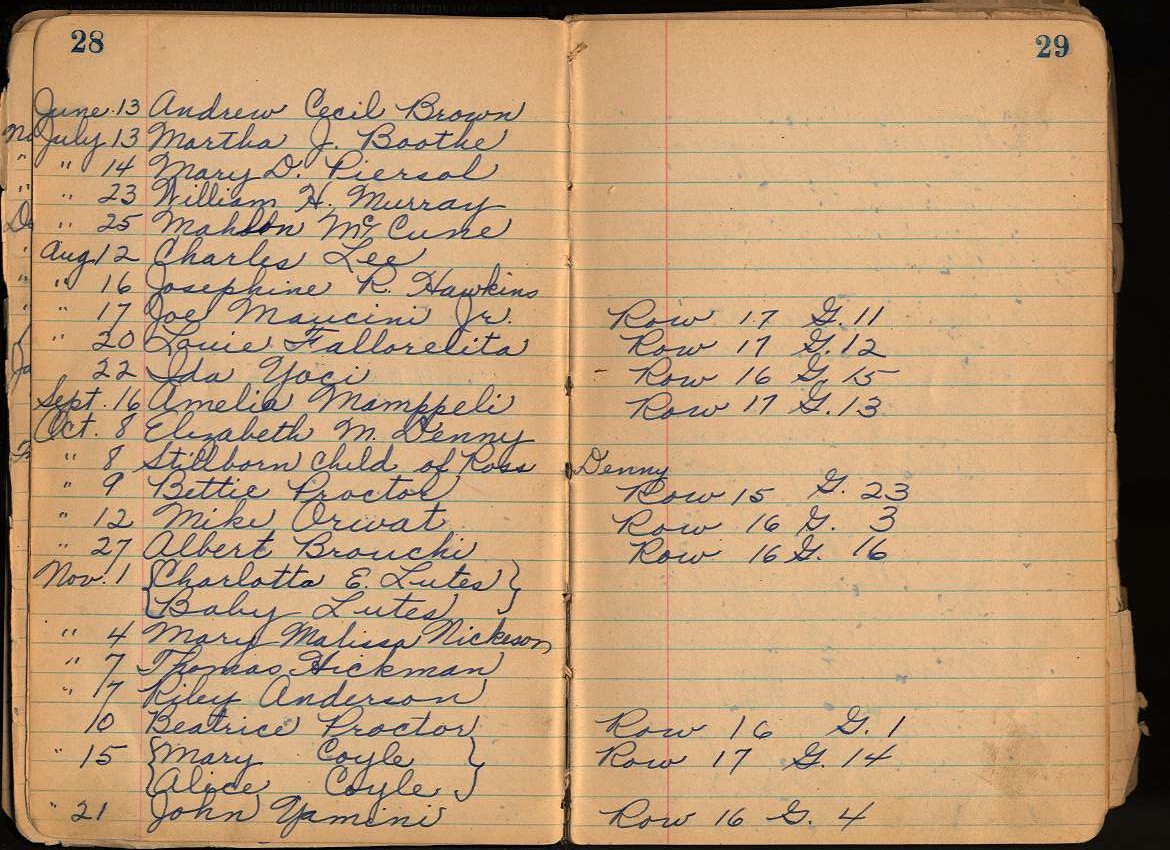 28
29
June 13 Andrew Cecil Brown
July 13 Martha J. Boothe
" 14 Mary D. Piersol
" 23 William H. Murray
" 25 Mahlon McCune
Aug 12 Charles Lee
" 16 Josephine R. Hawkins
" 17 Joe Mancini Jr. Row 17 G. 11
" 20 Louie Fallorelita Row 17 G. 12
22 Ida Yoci - Row 16 G. 15
Sept. 16 Amelia Mamppeli Row 17 G. 13
Oct. 8 Elizabeth M. Denny
" 8 Stillborn child of Ross Denny
" 9 Bettie Proctor Row 15 G. 23
" 12 Mike Orwat Row 16 G. 3
" 27 Albert Brouchi Row 16 G. 16
Nov. 1 {Charlotta E. Lutes}
{Baby Lutes}
" 4 Mary Malissa Nickeson
" 7 Thomas Hickman
" 7 Riley Anderson
10 Beatrice Proctor Row 16 G. 1
" 15 {Mary Coyle} Row 17 G. 14
{Alice Coyle}
" 21 John Yamini Row 16 G. 4